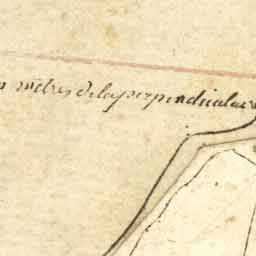 mètres de la perpendiculaire